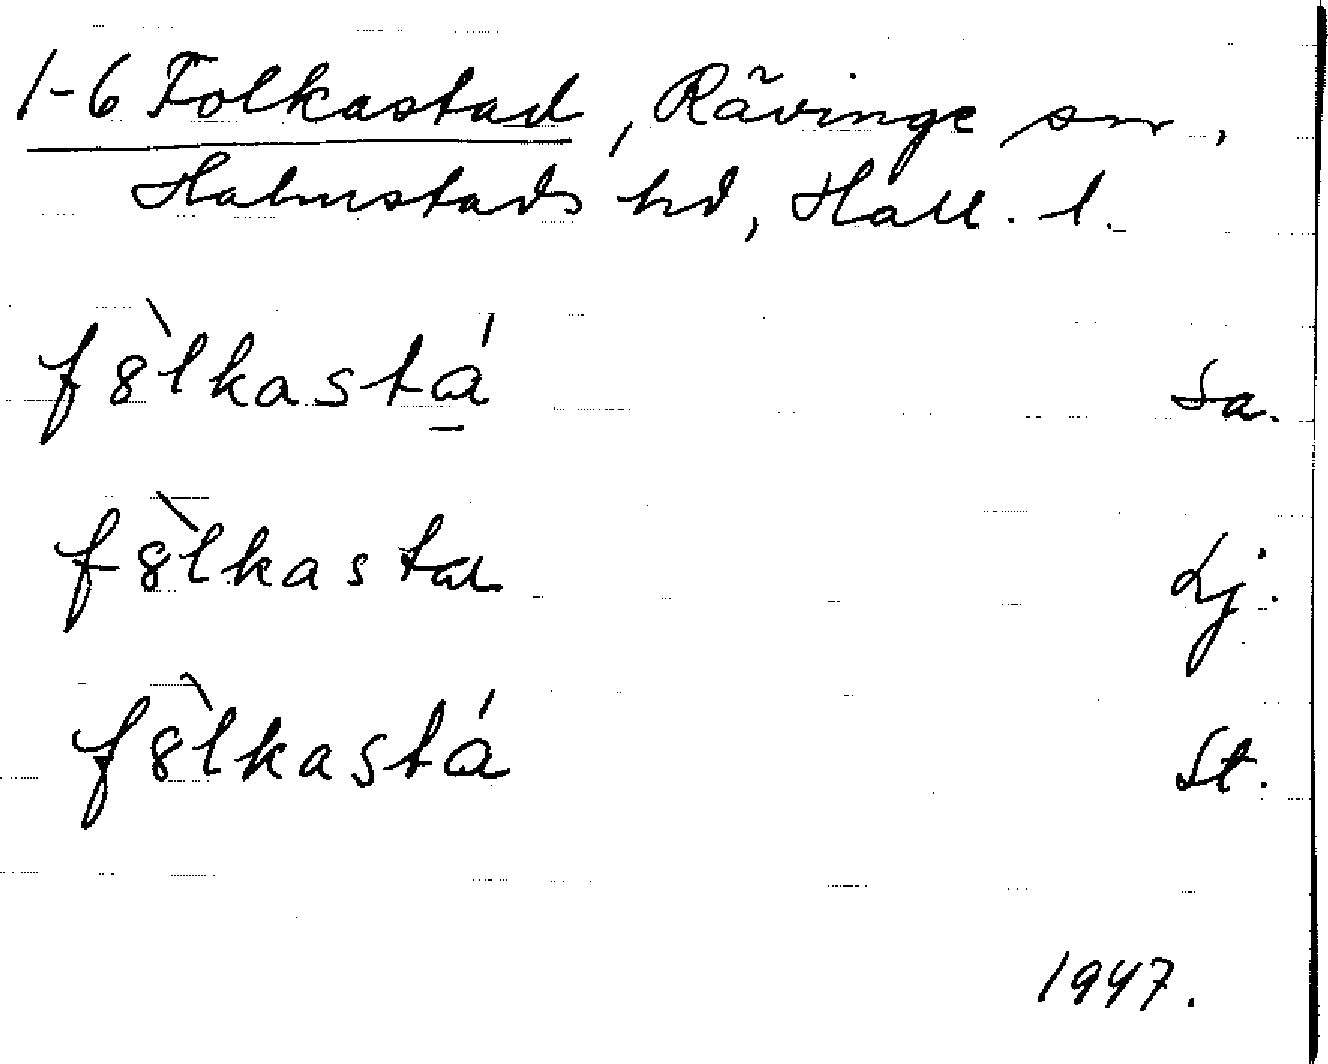 1-6 Folkastad, Rävinge sn,
Halmstads hd, Hall. l.
fȣ̀lkastá̱ Sa.
fȣ̀lkasta Lj.
fȣ̀lkastá St.
1947.